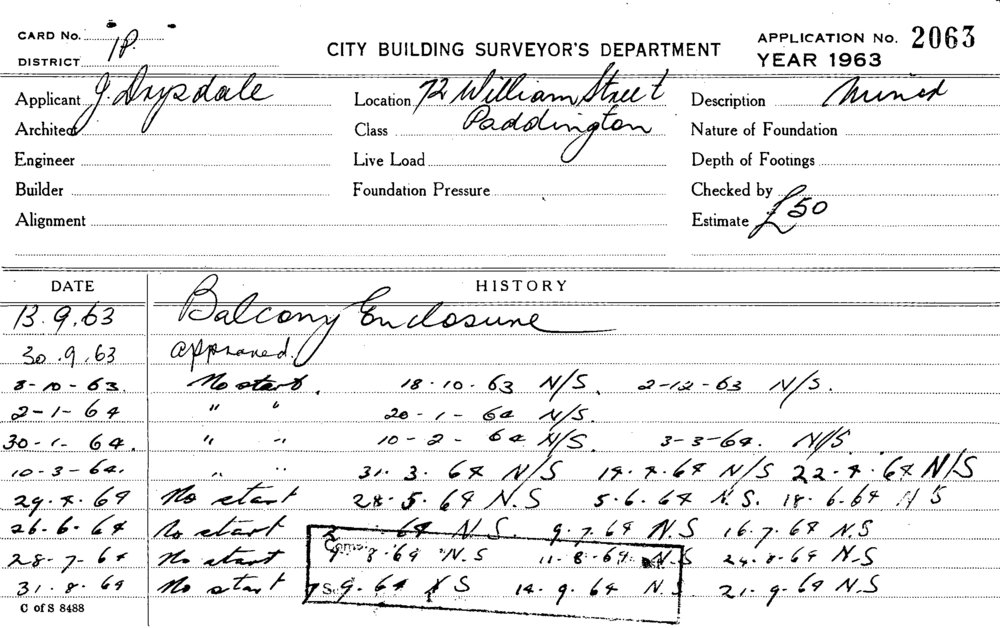 CARD No.
DISTRICT 1P.
CITY BUILDING SURVEYOR'S DEPARTMENT
APPLICATION No. 2063
YEAR 1963
Applicant J. Drysdale Location 72 William Street Description Minor
Architect Class Paddington Nature of Foundation
Engineer Live Load Depth of Footings
Builder Foundation Pressure Checked by
Alignment Estimate £50
DATE HISTORY
13.9.63 Balcony Enclosure
30.9.63 approved.
8-10-63. No start. 18.10.63 N/S. 2-12-63 N/S.
2-1-64 " " 20-1-64 N/S.
30-1-64. " " 10-2-64 N/S 3-3-64. N/S
10-3-64. " " 31.3.64 N/S 14.4.64 N/S 22.4.64 N/S
29.4.64 No start 28.5.64 N.S 5.6.64 N.S. 18.6.64 N S
26.6.64 No start 64 N.S. 9.7.64 N.S 16.7.64 N.S
28-7-64 No start 8.64 N.S 11-8.64 N.S 24.8.64 N.S
31.8.64 No start 7.9.64 N S 14.9.64 N.S 21.9.64 N.S
C of S 8488